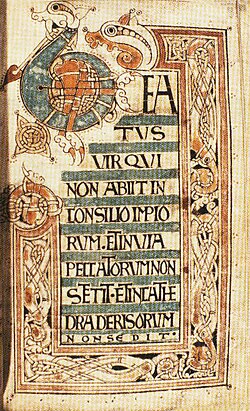 BEA
TUS
UIR QUI
NON ABIIT IN
CONSILIO IMPIO
RUM·ET IN UIA
PECCATORUM NON
STETIT·ET IN CATHE
DRA DERISORUM
NON SEDIT·